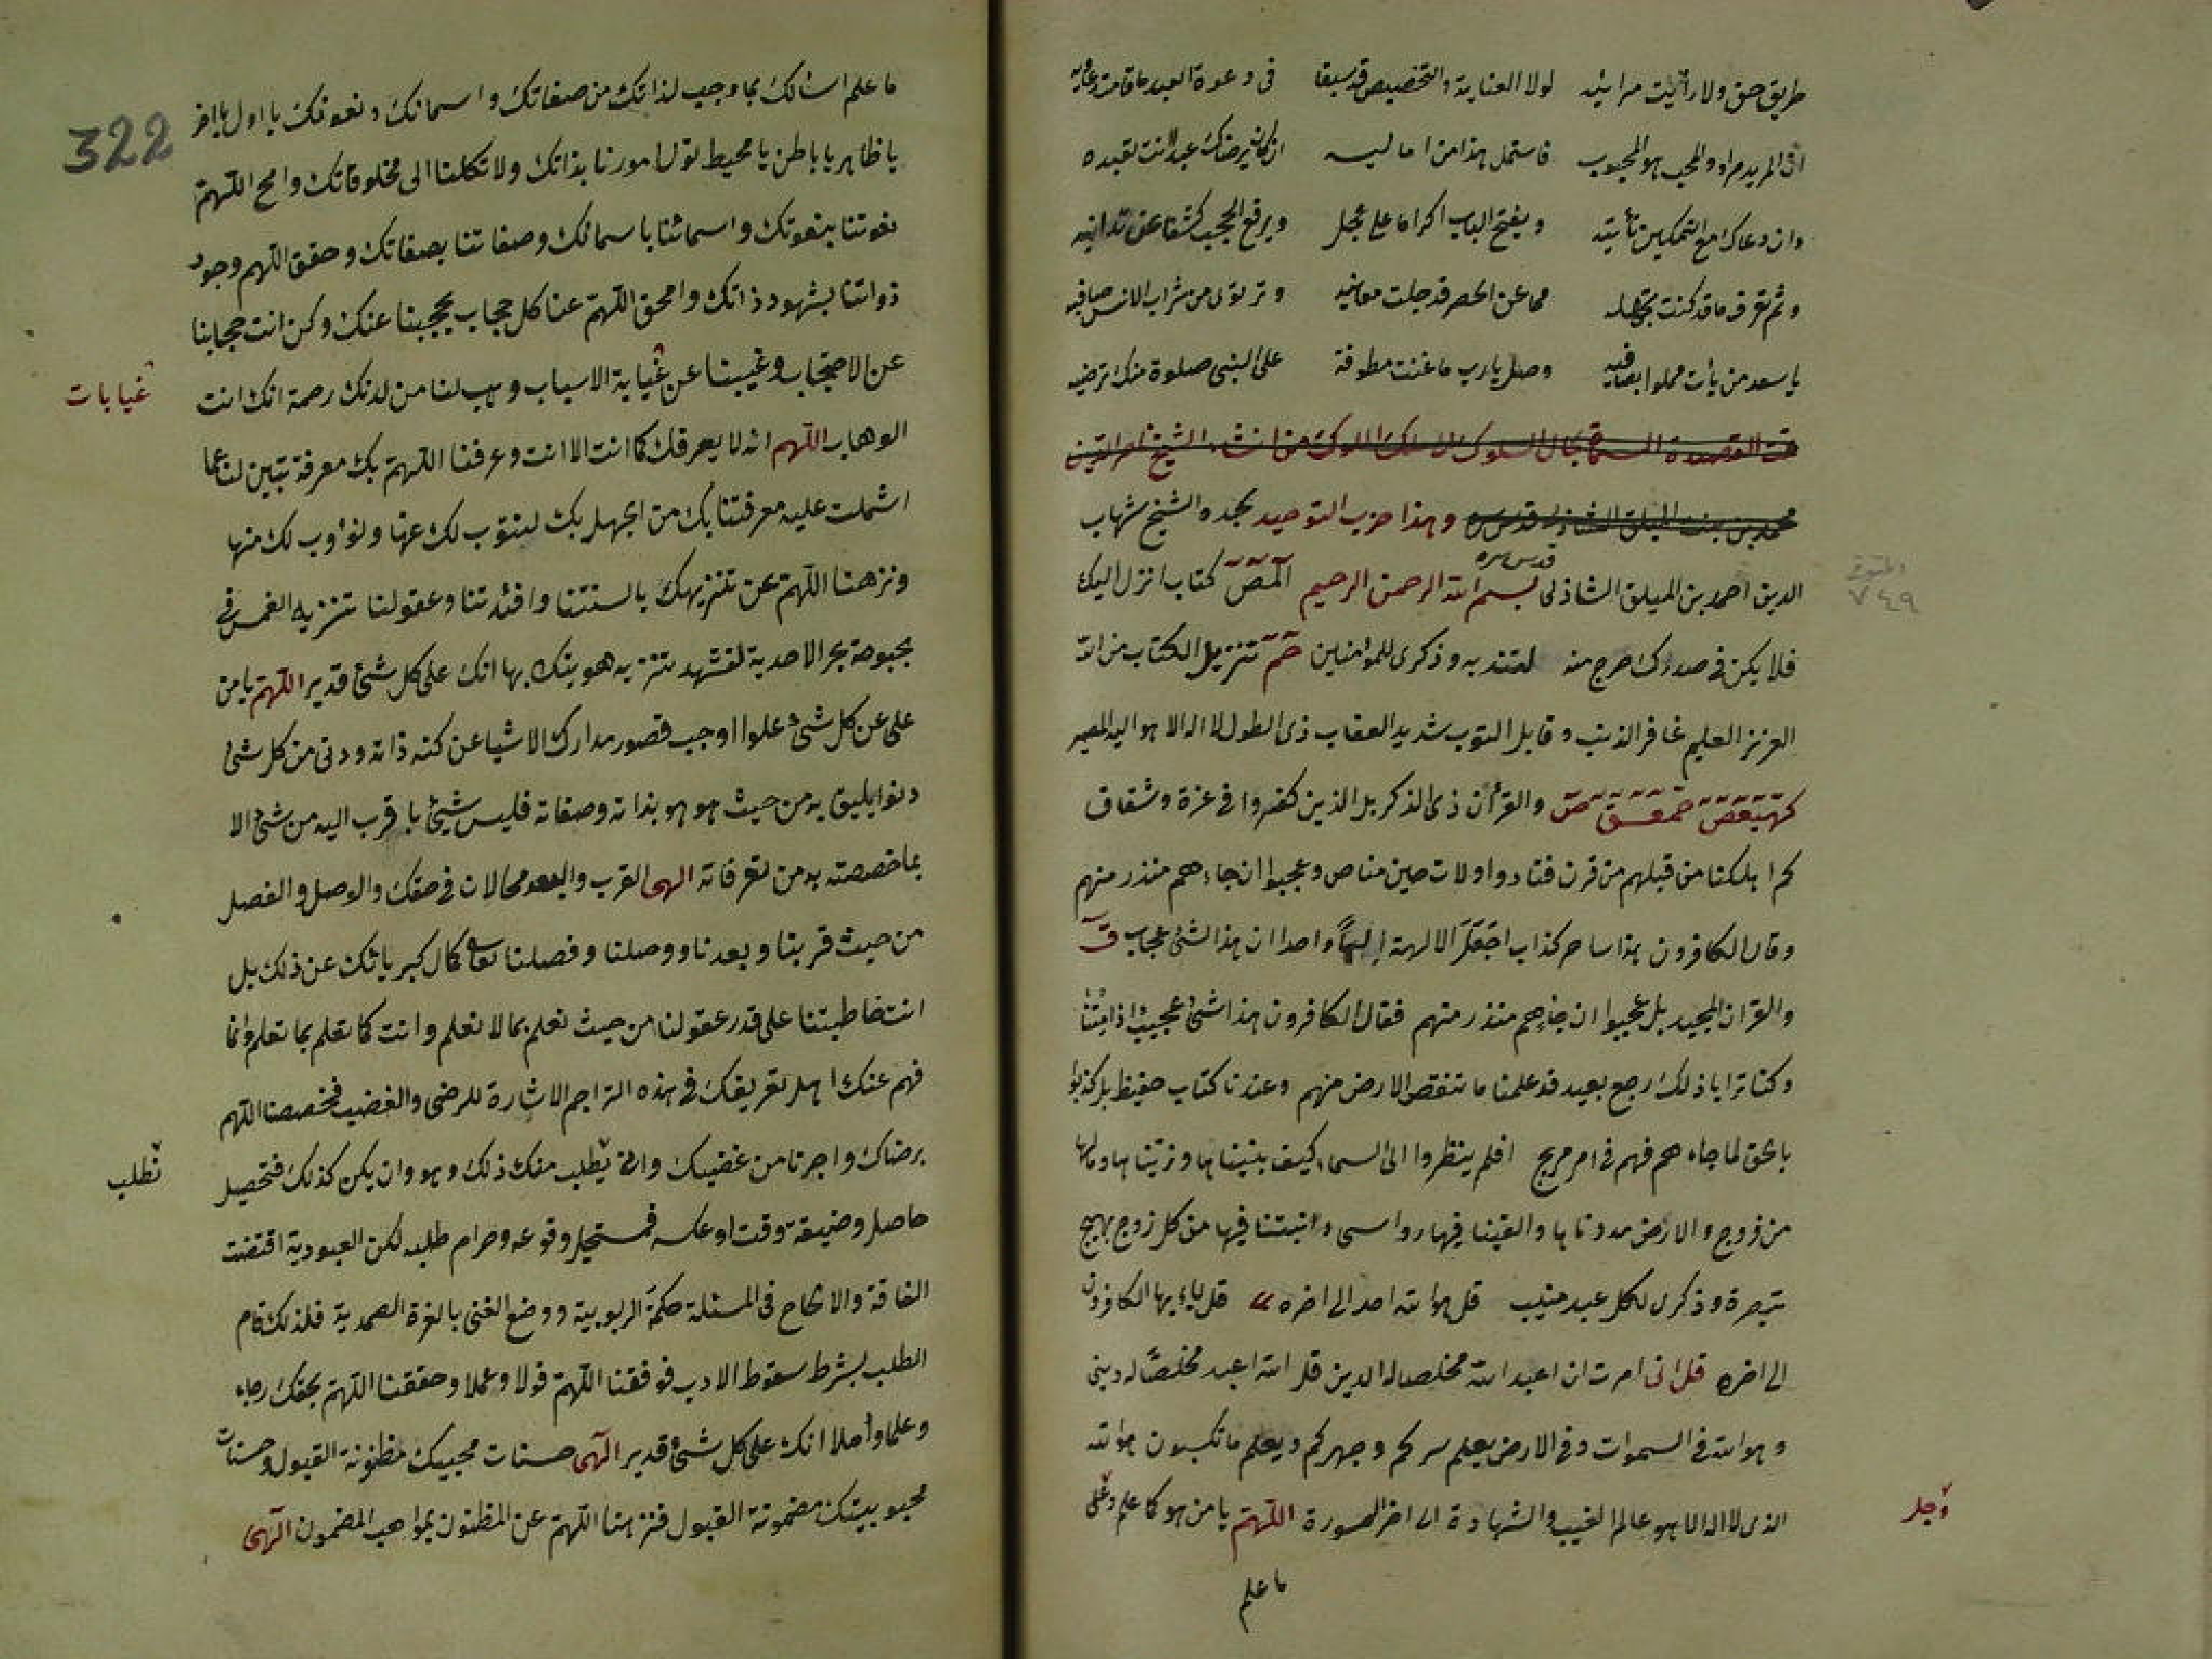 طريق حق ولا رأيت مراشد لولا العناية والتخصيص قد سبقا فى دعوة العبد ما قامت
المريد مراد والمحب هو المحبوب فاستمل هذا من اماليه ان كان يرضاك عبدا انت تعبده
وان دعاك مع التمكين تأتيه ويفتح الباب اكراما على عجل ويرفع الحجب كشفا عن تدانيه
وثم تعرف ما قد كنت تجهله مما عن الحصر قد جلت معانيه وترتوى من شراب الانس صافيه
يا سعد من بات مملوا بصافيه وصل يارب ما غنت مطوقة على النبى صلوة منك ترضيه
تمت القصيدة السلوك الشيخ ناصر الدين
محمد بن بنت الميلق الشاذلى قدس سره وهذا حزب التوحيد لجده الشيخ شهاب
الدين احمد بن الميلق الشاذلى قدس سره بسم الله الرحمن الرحيم المص كتاب انزل اليك
فلا يكن فى صدرك حرج منه لتنذر به وذكرى للمؤمنين حم تنزيل الكتاب من الله
العزيز العليم غافر الذنب وقابل التوب شديد العقاب ذى الطول لا اله الا هو اليه المصير
كهيعص حمعسق ص والقرأن ذى الذكر بل الذين كفروا فى عزة وشقاق
كم اهلكنا من قبلهم من قرن فنادوا ولات حين مناص وعجبوا ان جاءهم منذر منهم
وقال الكافرون هذا ساحر كذاب اجعل الالهة إلهاً واحدا ان هذا لشئ عجاب ق
والقران المجيد بل عجبوا ان جاءهم منذر منهم فقال الكافرون هذا شئ عجيب أئذا متنا
وكنا ترابا ذلك رجع بعيد قد علمنا ما تنقص الارض منهم وعندنا كتاب حفيظ بل كذبوا
بالحق لما جاءهم فهم فى امر مريج افلم ينظروا الى السماء كيف بنيناها وزيناها ومالها
من فروج والارض مددناها والقينا فيها رواسى وانبتنا فيها من كل زوج بهيج
تبصرة وذكرى لكل عبد منيب قل هو الله احد الى اخره قل يا ايها الكافرون
الى اخره قل انى امرت ان اعبد الله مخلصا له الدين قل الله اعبد مخلصًا له دينى
وهو الله فى السموات وفى الارض يعلم سركم وجهركم ويعلم ما تكسبون هو الله
الذى لا اله الا هو عالم الغيب والشهادة الى اخر السورة اللهم يا من هو كما علم وعلى
وجل
ما علم
٧٤٩
322
ما علم اسألك بما وجب لذاتك من صفاتك واسمائك ونعوتك يا اول يا اخر
يا ظاهر يا باطن يا محيط تول امورنا بذاتك ولا تكلنا الى مخلوقاتك وامح اللهم
نعوتنا بنعوتك واسمائنا باسمائك وصفاتنا بصفاتك وحقق اللهم وجود
ذواتنا بشهود ذاتك وامحق اللهم عنا كل حجاب يحجبنا عنك وكن انت حجابنا
عن الاحتجاب وغيبنا عن غيابة الاسباب وهب لنا من لدنك رحمة انك انت
غيابات
الوهاب اللهم انه لا يعرفك كما انت الا انت وعرفنا اللهم بك معرفة تبين لنا عما
اشتملت عليه معرفتنا بك من الجهل بك لنتوب لك عنها ونؤوب لك منها
ونزهنا اللهم عن تنزيهك بالسنتنا وافئدتنا وعقولنا تنزيه الغمس فى
بحبوحة بحر الاحدية لنشهد تنزيه هويتك بها انك على كل شئ قدير اللهم يا من
على عن كل شئ علوا اوجب قصور مدارك الاشيا عن كنه ذاته ودنى من كل شئ
دنوا يليق به من حيث هو هو بذاته وصفاته فليس شئ باقرب اليه من شئ الا
بما خصصته به من تعرفاته الهى القرب والبعد محالان فى حقك والوصل والفصل
من حيث قربنا وبعدنا ووصلنا وفصلنا تعالى كمال كبريائك عن ذلك بل
انت خاطبتنا على قدر عقولنا من حيث نعلم بما لا نعلم وانت كما تعلم بما تعلم وانما
فهم عنك اهل تعريفك فى هذه التراجم الاشارة للرضى والغضب فخصصنا اللهم
برضاك واجرنا من غضبك وانى يطلب منك ذلك وهو وان يكن كذلك فتحصيل
نطلب
حاصل وضيعة وقت او عكسه فمستحيل وقوعه وحرام طلبه لكن العبودية اقتضت
الفاقة والالحاح فى المسئلة حكمة الربوبية ووضع الغنى بالعزة الصمدية فلذلك قام
الطلب بشرط سقوط الادب فوفقنا اللهم قولا وعملا وحققنا اللهم بحقك رجاء
وعلما وأملا انك على كل شئ قدير الهى حسنات محبيك مظنونة القبول وحسنات
محبوبيتك مضمونة القبول فنزهنا اللهم عن المظنون بمواهب المضمون الهى